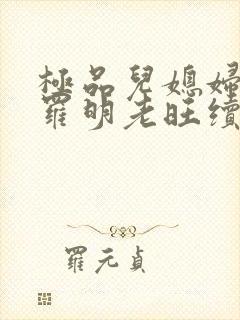 極品兒媳婦
羅明老旺續
羅元貞